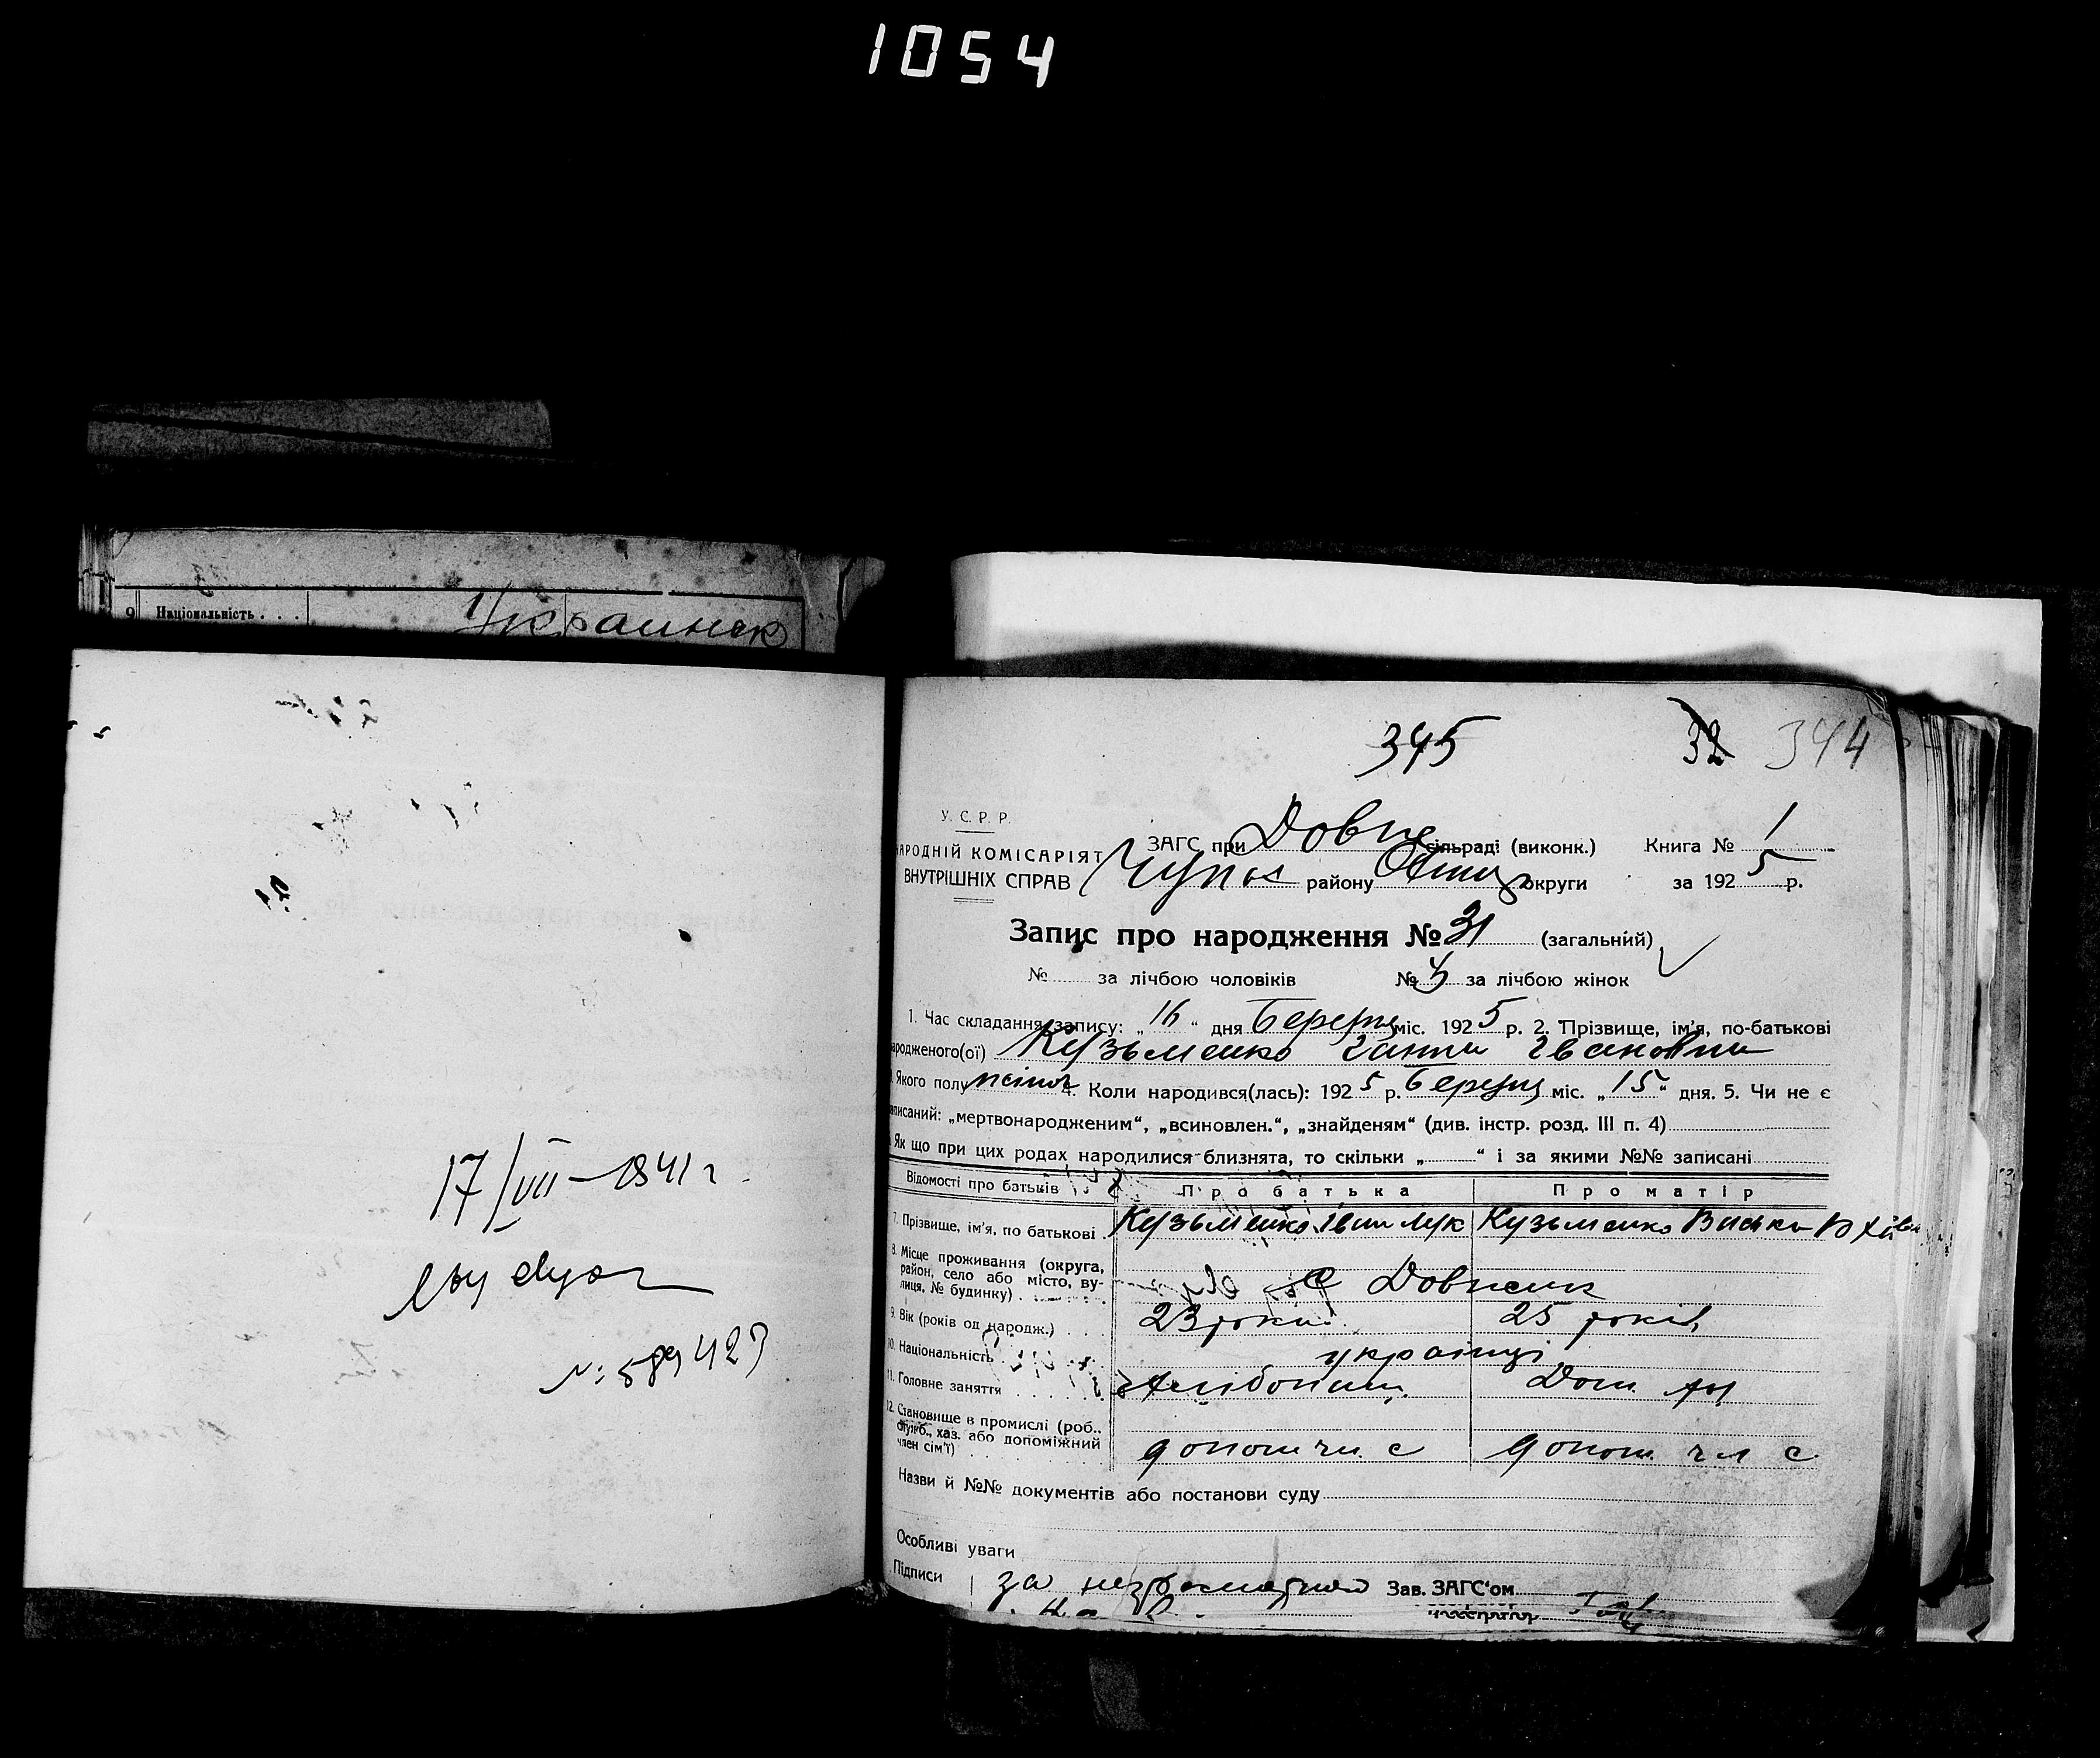 1054
9 Національність . . . Украинск
17/VII–1941 г
№ 589423
345 32 344
У. С. Р. Р.
НАРОДНІЙ КОМІСАРІЯТ
ВНУТРІШНІХ СПРАВ
ЗАГС при Довпе сільраді (виконк.) Книга № 1
Чупов району округи за 1925 р.
Запис про народження № 31 (загальний)
№ за лічбою чоловіків № за лічбою жінок
1. Час складання запису: „16“ дня Березня міс. 1925 р. 2. Прізвище, ім'я, по-батькові
народженого(ої) Кузьменко Ганни Івановни
Якого полу жіноч 4. Коли народився(лась): 1925 р. Березня міс. „15“ дня. 5. Чи не є
записаний: „мертвонародженим“, „всиновлен.“, „знайденям“ (див. інстр. розд. III п. 4)
Як що при цих родах народилися близнята, то скільки „ “ і за якими №№ записані
Відомості про батьків Про батька Про матір
7. Прізвище, ім'я, по батькові . Кузьменко Іван Лук Кузьменко
8. Місце проживання (округа,
район, село або місто, ву-
лиця, № будинку) . с Довпенк
9. Вік (років од народж.) . . . 23 роки 25 років
10. Національність українці
11. Головне заняття . . . . . Хлібопаш. Дом.
12. Становище в промислі (роб.,
служб., хаз. або допоміжний
член сім'ї) допом чл. с допом. чл с.
Назви й №№ документів або постанови суду
Особливі уваги
Підписи за неграмотного Зав. ЗАГС'ом